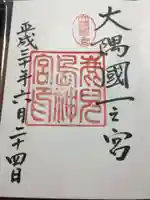 大隅國一之宮
鹿兒
島神
宮印
平成三十年六月二十四日